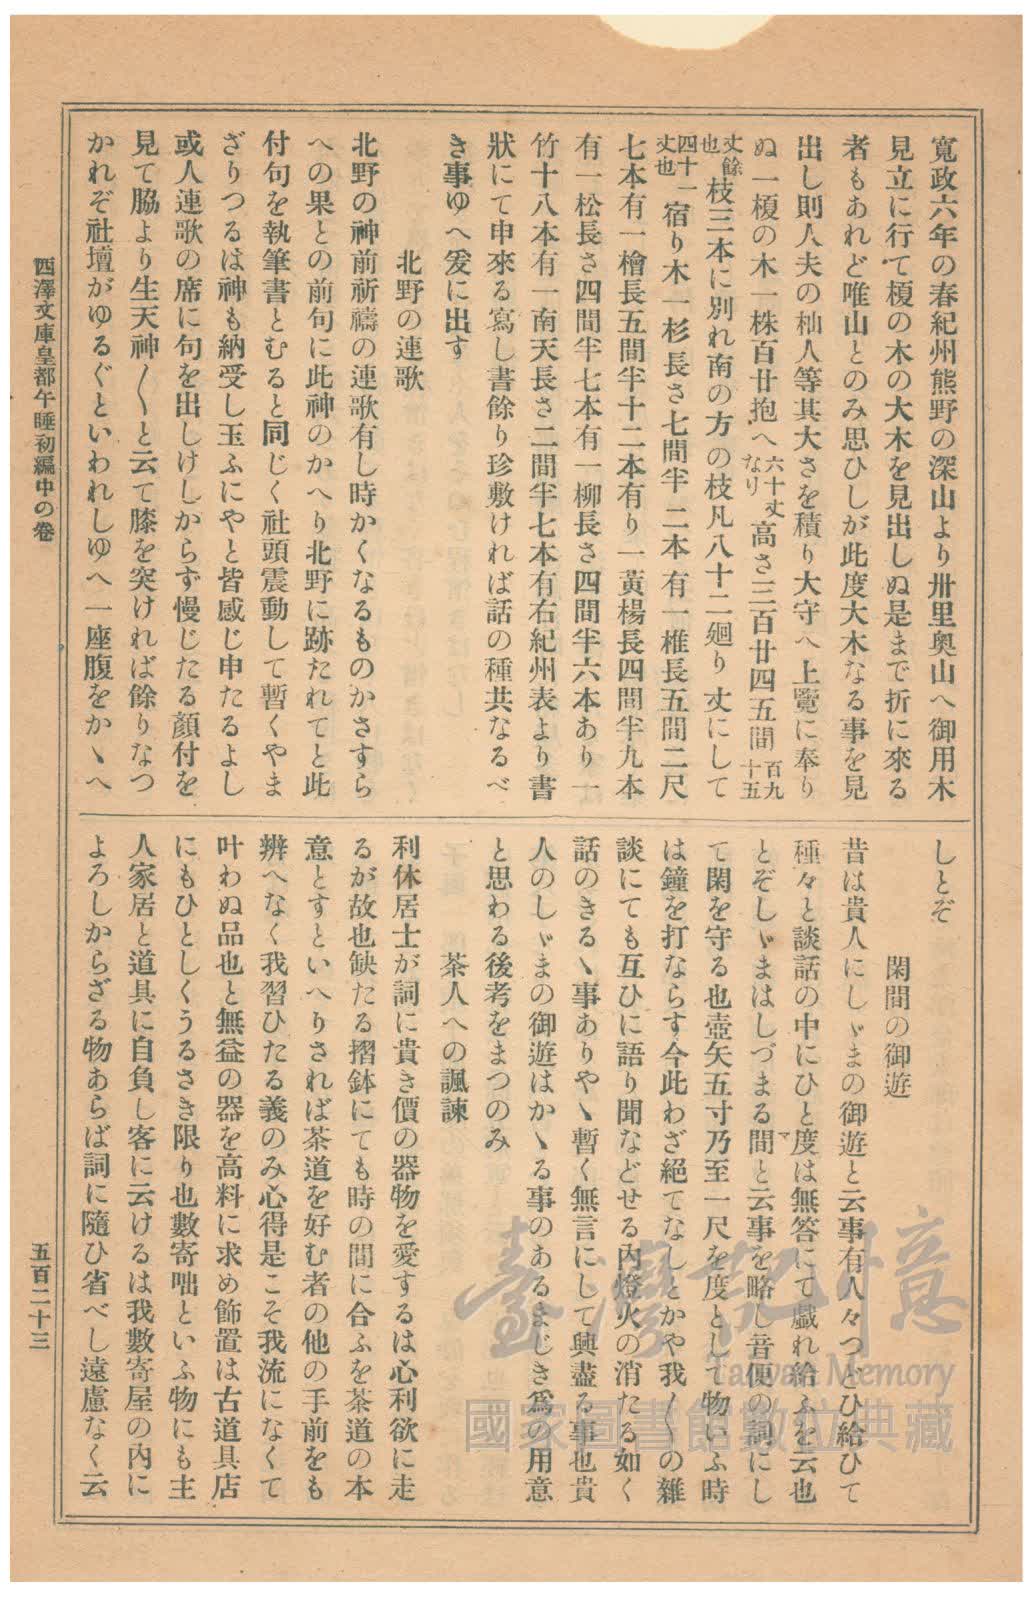 寬政六年の春紀州熊野の深山より卅里奧山へ御用木
見立に行て榎の木の大木を見出しぬ是まで折に來る
者もあれど唯山とのみ思ひしが此度大木なる事を見
出し則人夫の杣人等其大さを積り大守へ上覽に奉り
ぬ一榎の木一株百廿抱へ六十丈なり高さ三百廿四五間百九十五
丈餘也枝三本に別れ南の方の枝凡八十二廻り丈にして
四十丈也一宿り木一杉長さ七間半二本有一椎長五間二尺
七本有一檜長五間半十二本有り一黃楊長四間半九本
有一松長さ四間半七本有一柳長さ四間半六本あり一
竹十八本有一南天長さ二間半七本有右紀州表より書
狀にて申來る寫し書餘り珍敷ければ話の種共なるべ
き事ゆへ爰に出す
北野の連歌
北野の神前祈禱の連歌有し時かくなるものかさすら
への果との前句に此神のかへり北野に跡たれてと此
付句を執筆書とむると同じく社頭震動して暫くやま
ざりつるは神も納受し玉ふにやと皆感じ申たるよし
或人連歌の席に句を出しけしからず慢じたる顏付を
見て脇より生天神〱と云て膝を突ければ餘りなつ
かれぞ社壇がゆるぐといわれしゆへ一座腹をかゝへ
しとぞ
閑間の御遊
昔は貴人にしゞまの御遊と云事有人々つどひ給ひて
種々と談話の中にひと度は無答にて戯れ給ふを云也
とぞしゞまはしづまる間マと云事を略し音便の詞にし
て閑を守る也壺矢五寸乃至一尺を度として物いふ時
は鐘を打ならす今此わざ絕てなしとかや我〱の雜
談にても互ひに語り聞などせる內燈火の消たる如く
話のきるゝ事ありやゝ暫く無言にして興盡る事也貴
人のしゞまの御遊はかゝる事のあるまじき爲の用意
と思わる後考をまつのみ
茶人への諷諫
利休居士が詞に貴き價の器物を愛するは心利欲に走
るが故也缺たる摺鉢にても時の間に合ふを茶道の本
意とすといへりされば茶道を好む者の他の手前をも
辨へなく我習ひたる義のみ心得是こそ我流になくて
叶わぬ品也と無益の器を高料に求め飾置は古道具店
にもひとしくうるさき限り也數寄咄といふ物にも主
人家居と道具に自負し客に云けるは我數寄屋の內に
よろしからざる物あらば詞に隨ひ省べし遠慮なく云
西澤文庫皇都午睡初編中の卷
五百二十三
臺灣記憶
Taiwan Memory
國家圖書館數位典藏